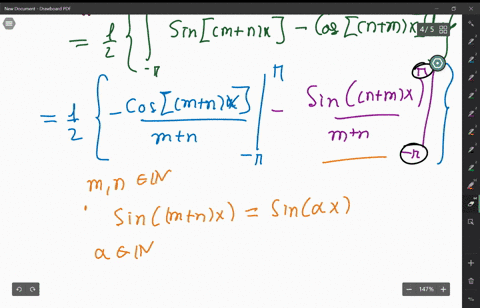 New Document - Drawboard PDF
= 1/2 { ∫ Sin[(m+n)x] - Cos[(n+m)x]
-π
4/5
= 1/2 { -Cos[(m+n)x]/(m+n) |_{-π}^{π} - Sin((n+m)x)/(m+n) |_{-π}^{π} }
m,n ∈ ℕ
Sin((m+n)x) = Sin(αx)
α ∈ ℕ
147%